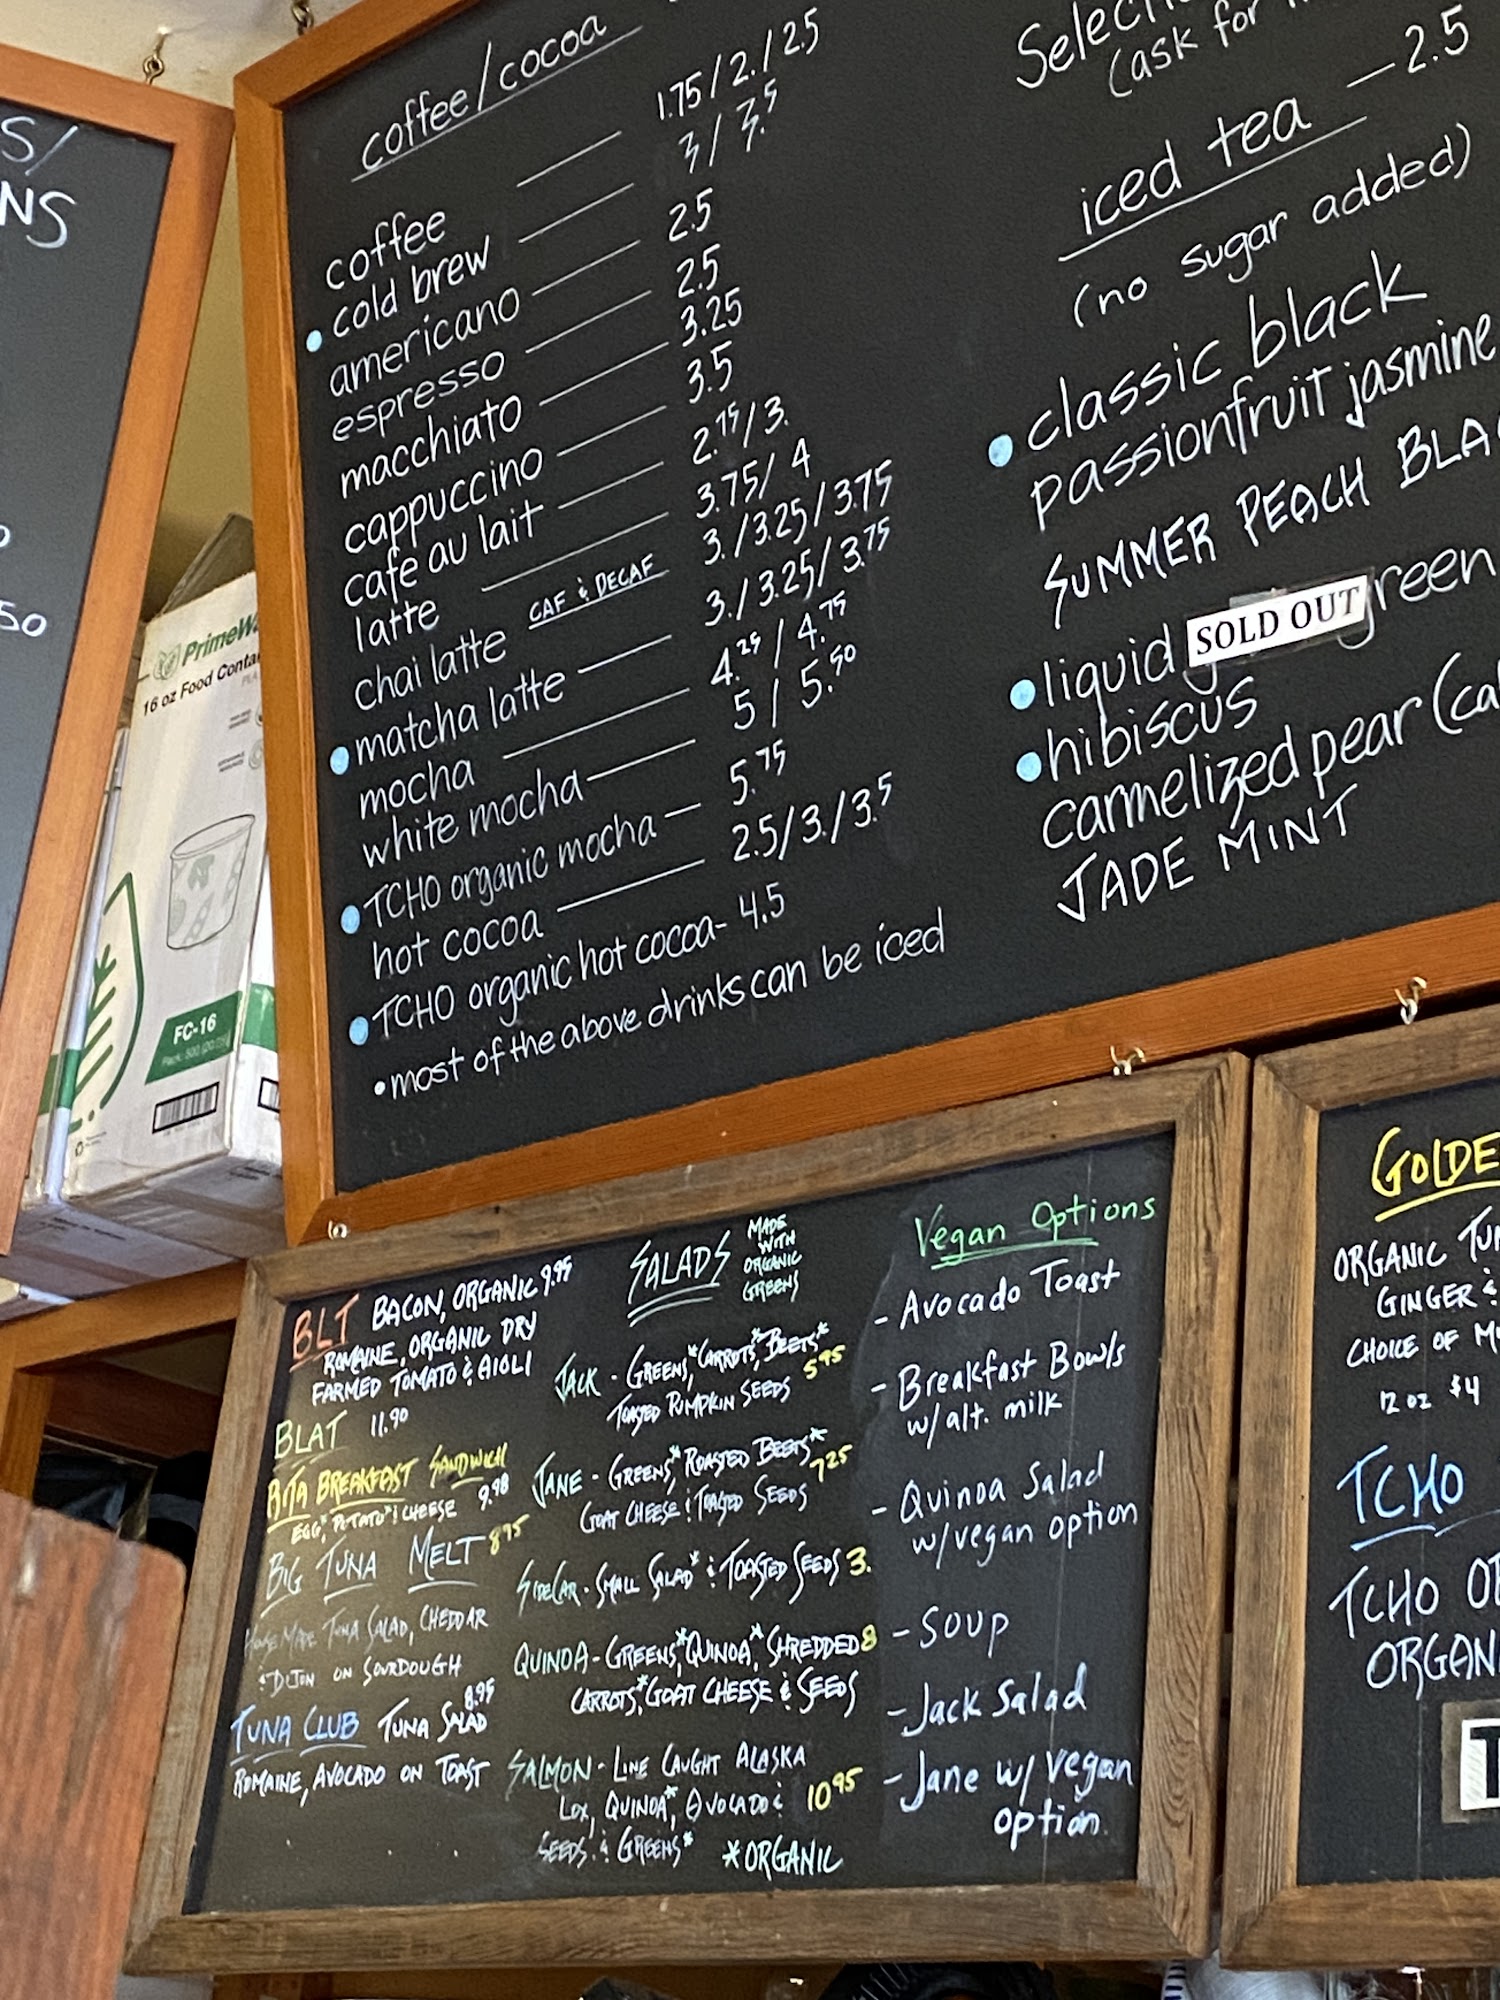 S/
NS
50
PrimeWa
16 oz Food Conta
FC-16
coffee/cocoa
coffee 1.75/2./2.5
cold brew 3/3.5
americano 2.5
espresso 2.5
macchiato 3.25
cappuccino 3.5
cafe au lait 2.75/3.
latte 3.75/4
chai latte CAF & DECAF 3./3.25/3.75
matcha latte 3./3.25/3.75
mocha 4.25/4.75
white mocha 5/5.50
TCHO organic mocha 5.75
hot cocoa 2.5/3./3.5
TCHO organic hot cocoa- 4.5
•most of the above drinks can be iced
(ask for
iced tea — 2.5
(no sugar added)
classic black
passionfruit jasmine
SUMMER PEACH BLAC
liquid SOLD OUT reen
hibiscus
carmelized pear (ca
JADE MINT
BLT BACON, ORGANIC 9.95
ROMAINE, ORGANIC DRY
FARMED TOMATO & AIOLI
BLAT 11.90
BITA BREAKFAST SANDWICH
EGG*, POTATO* & CHEESE 9.98
BIG TUNA MELT 8.75
HOUSE MADE TUNA SALAD, CHEDDAR
& DIJON ON SOURDOUGH
TUNA CLUB TUNA SALAD 8.95
ROMAINE, AVOCADO ON TOAST
SALADS MADE
WITH
ORGANIC
GREENS
JACK - GREENS*, CARROTS*, BEETS*
TOASTED PUMPKIN SEEDS 5.95
JANE - GREENS*, ROASTED BEETS*
GOAT CHEESE & TOASTED SEEDS 7.25
SIDECAR - SMALL SALAD* & TOASTED SEEDS 3.
QUINOA - GREENS*, QUINOA*, SHREDDED 8
CARROTS*, GOAT CHEESE & SEEDS
SALMON - LINE CAUGHT ALASKA
LOX, QUINOA*, AVOCADO & 10.95
SEEDS & GREENS* *ORGANIC
Vegan Options
- Avocado Toast
- Breakfast Bowls
w/ alt. milk
- Quinoa Salad
w/ vegan option
- Soup
- Jack Salad
- Jane w/ vegan
option.
GOLDE
ORGANIC TU
GINGER &
CHOICE OF M
12 oz $4
TCHO
TCHO O
ORGAN
T